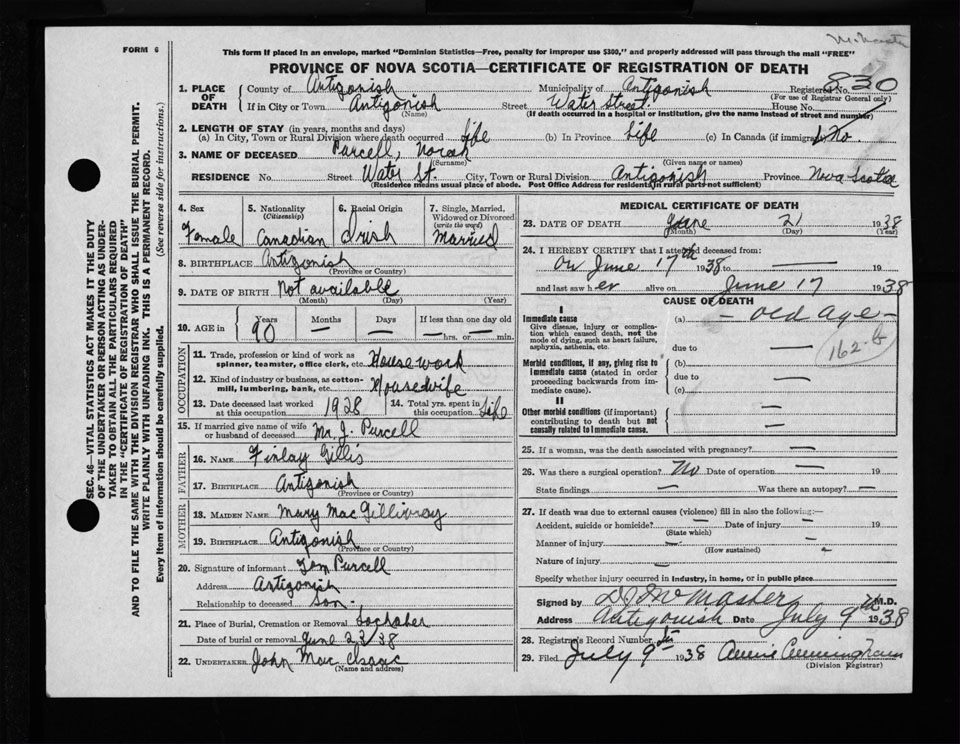 FORM 6
This form if placed in an envelope, marked "Dominion Statistics—Free, penalty for improper use $300," and properly addressed will pass through the mail "FREE"
PROVINCE OF NOVA SCOTIA—CERTIFICATE OF REGISTRATION OF DEATH
830
1. PLACE OF DEATH County of Antigonish Municipality of Antigonish Registered No.
(For use of Registrar General only)
If in City or Town Antigonish Street Water Street. House No.
(Name) (If death occurred in a hospital or institution, give the name instead of street and number)
2. LENGTH OF STAY (in years, months and days)
(a) In City, Town or Rural Division where death occurred Life (b) In Province Life (c) In Canada (if immigrant) No
3. NAME OF DECEASED Purcell, Norah
(Surname) (Given name or names)
RESIDENCE No. Street Water St. City, Town or Rural Division Antigonish Province Nova Scotia
(Residence means usual place of abode. Post Office Address for residents in rural parts not sufficient)
4. Sex 5. Nationality (Citizenship) 6. Racial Origin 7. Single, Married, Widowed or Divorced (write the word)
Female Canadian Irish Married
8. BIRTHPLACE Antigonish
(Province or Country)
9. DATE OF BIRTH Not available
(Month) (Day) (Year)
10. AGE in Years Months Days If less than one day old
90 — — — hrs. or — min.
OCCUPATION
11. Trade, profession or kind of work as spinner, teamster, office clerk, etc. Housework
12. Kind of industry or business, as cotton-mill, lumbering, bank, etc. Housewife
13. Date deceased last worked at this occupation 1928 14. Total yrs. spent in this occupation Life
15. If married give name of wife or husband of deceased Mr. J. Purcell
FATHER
16. NAME Finlay Gillis
17. BIRTHPLACE Antigonish
(Province or Country)
MOTHER
18. MAIDEN NAME Mary Mac Gillivray
19. BIRTHPLACE Antigonish
(Province or Country)
20. Signature of informant Tom Purcell
Address Antigonish
Relationship to deceased son.
21. Place of Burial, Cremation or Removal Lochaber
Date of burial or removal June 23/38
22. UNDERTAKER John Mac Isaac
(Name and address)
MEDICAL CERTIFICATE OF DEATH
23. DATE OF DEATH June 21 1938
(Month) (Day) (Year)
24. I HEREBY CERTIFY that I attended deceased from:
on June 17th 1938 to — 19
and last saw her alive on June 17 1938
CAUSE OF DEATH
I
Immediate cause (a) — old age —
Give disease, injury or complication which caused death, not the mode of dying, such as heart failure, asphyxia, asthenia, etc.
due to —
162-b
Morbid conditions, if any, giving rise to immediate cause (stated in order proceeding backwards from immediate cause).
(b)
due to —
(c)
II
Other morbid conditions (if important) contributing to death but not causally related to immediate cause.
—
—
25. If a woman, was the death associated with pregnancy? —
26. Was there a surgical operation? No Date of operation — 19
State findings — Was there an autopsy? —
27. If death was due to external causes (violence) fill in also the following:—
Accident, suicide or homicide? — Date of injury — 19
(State which)
Manner of injury —
(How sustained)
Nature of injury —
Specify whether injury occurred in industry, in home, or in public place
Signed by M.D.
Address Antigonish Date July 9th 1938
28. Registrar's Record Number
29. Filed July 9th 1938 Annie Cunningham
(Division Registrar)
SEC. 46—VITAL STATISTICS ACT MAKES IT THE DUTY
OF THE UNDERTAKER OR PERSON ACTING AS UNDER-
TAKER TO OBTAIN ALL THE PARTICULARS REQUIRED
IN THE "CERTIFICATE OF REGISTRATION OF DEATH"
AND TO FILE THE SAME WITH THE DIVISION REGISTRAR WHO SHALL ISSUE THE BURIAL PERMIT.
WRITE PLAINLY WITH UNFADING INK. THIS IS A PERMANENT RECORD.
Every item of information should be carefully supplied. (See reverse side for instructions.)